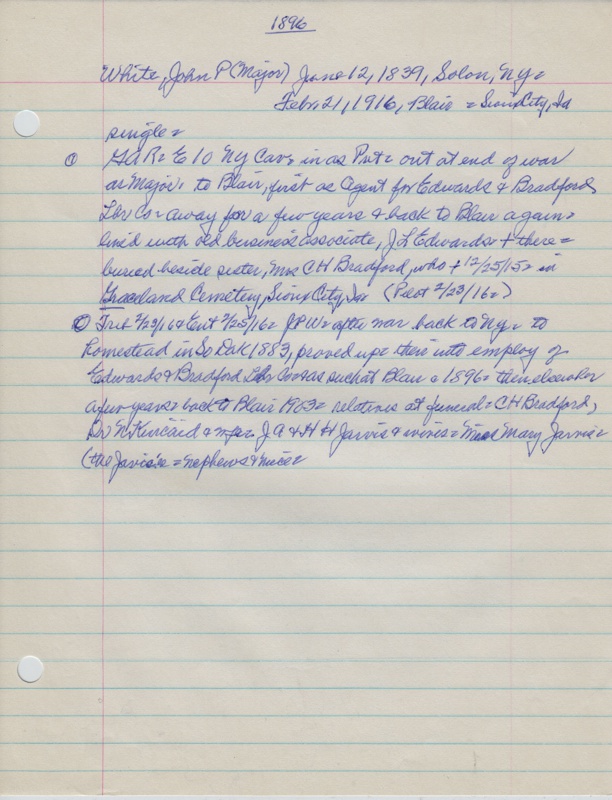 1896
White, John P (Major) June 12, 1839, Solon, NY=
Febr. 21, 1916, Blair = Sioux City, Ia
single=
① GAR= E 10 NY Cav= in as Pvt= out at end of war
as Major= to Blair, first as Agent for Edwards & Bradford
Lbr Co= away for a few years & back to Blair again=
lived with old business associate, J L Edwards + there=
buried beside sister, Mrs C H Bradford, who + 12/25/15= in
Graceland Cemetery, Sioux City, Ia= (Pilot 2/23/16=)
② Trib 2/23/16 & Ent 2/25/16= JPW= after war back to NY= to
Homestead in So Dak 1883, proved up= then into employ of
Edwards & Bradford Lbr Co= as such at Blair = 1896= then elsewhere
a few years= back to Blair 1903= relatives at funeral= CH Bradford,
Dr N Kincaid & wife= J A & H H Jarvis & wives= Miss Mary Jarvis=
(the Javis'e = nephews & niece=